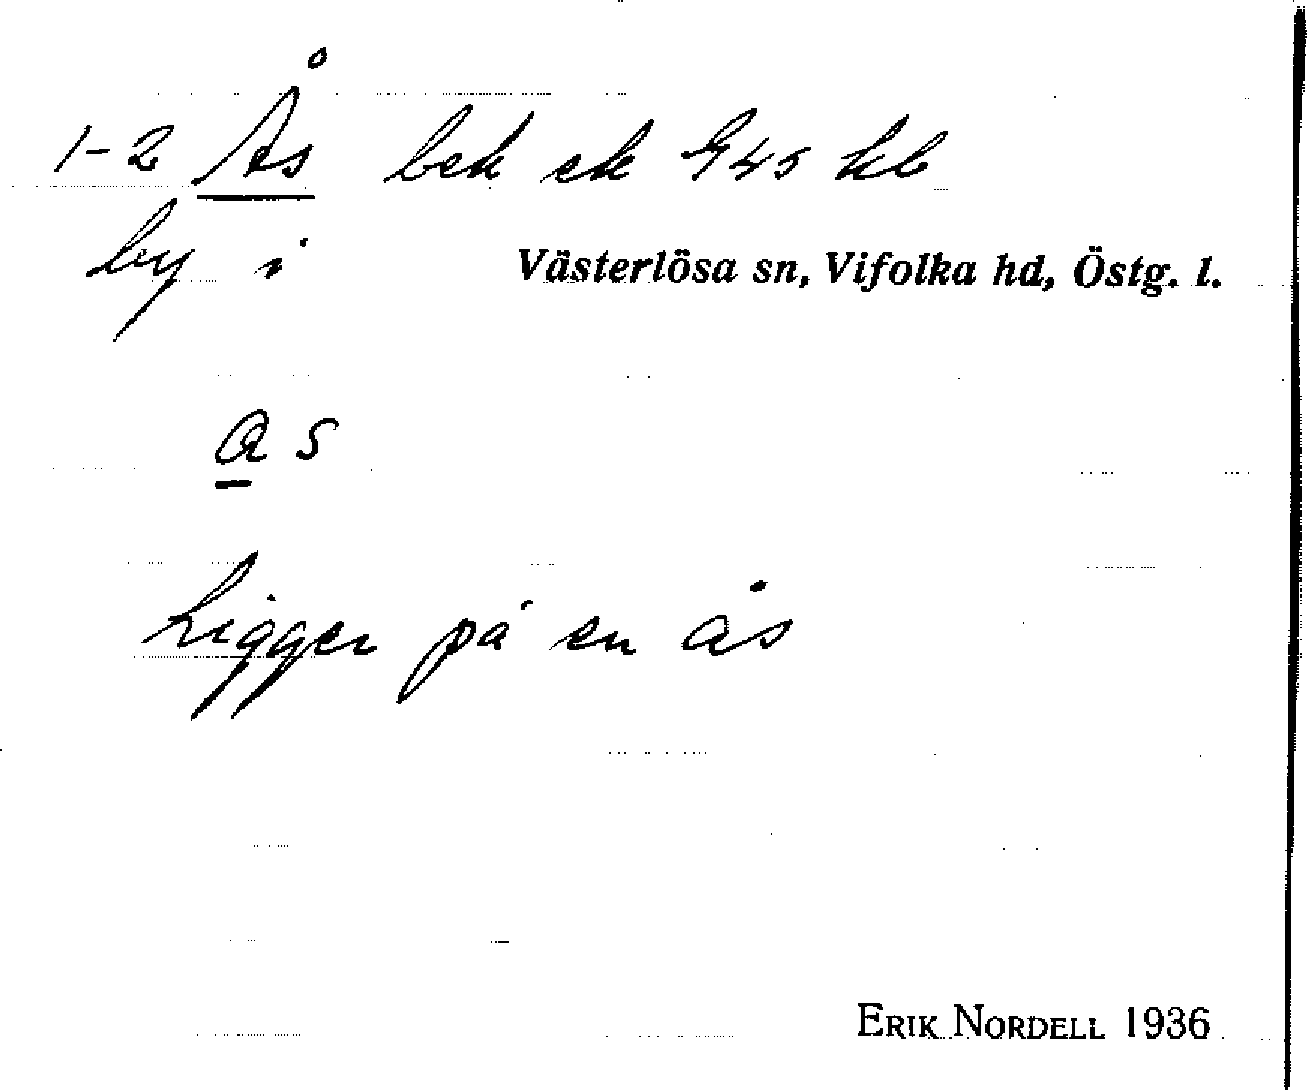 1-2 Ås bek ek 945 kb
by i Västerlösa sn, Vifolka hd, Östg. l.
a s
Ligger på en ås
ERIK NORDELL 1936